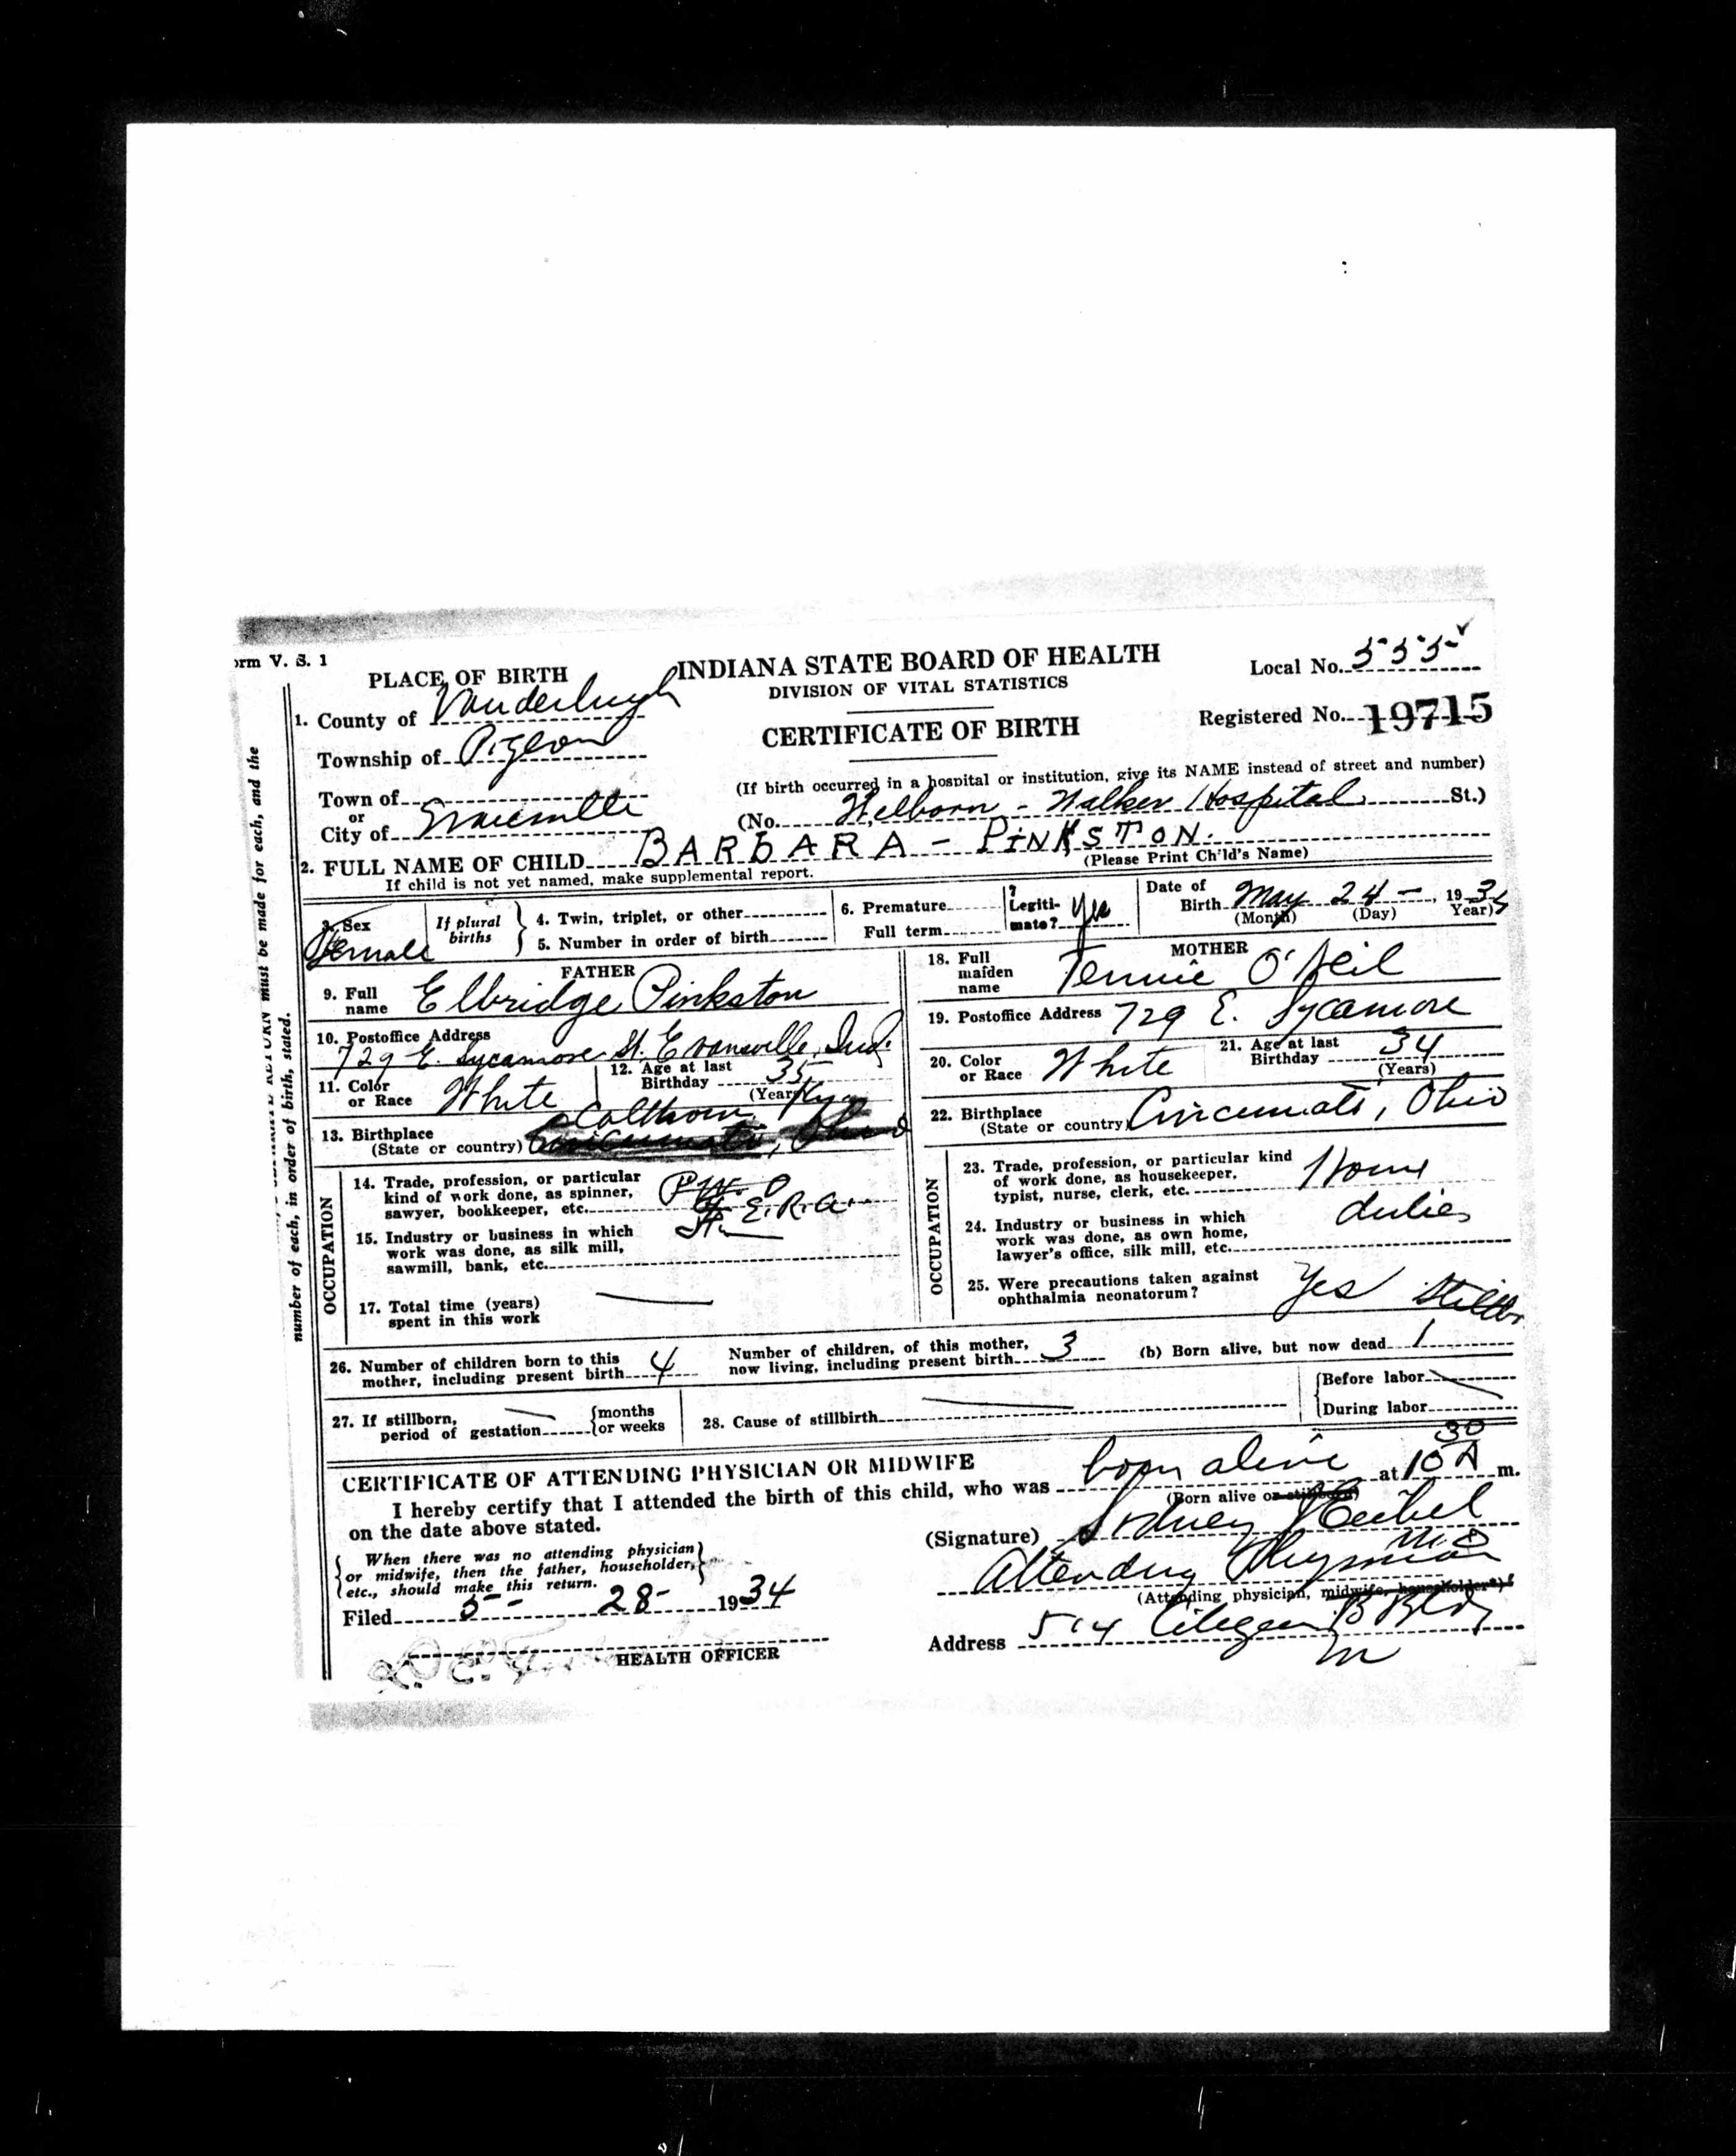 orm V. S. 1
PLACE OF BIRTH
INDIANA STATE BOARD OF HEALTH
DIVISION OF VITAL STATISTICS
CERTIFICATE OF BIRTH
Local No. 555
Registered No. 19715
1. County of Vanderburgh
Township of Pigeon
Town of
or
City of Evansville
(If birth occurred in a hospital or institution, give its NAME instead of street and number)
(No. Welborn - Walker Hospital St.)
2. FULL NAME OF CHILD BARBARA - PINKSTON.
(Please Print Ch'ld's Name)
If child is not yet named, make supplemental report.
3. Sex
Female
If plural births
4. Twin, triplet, or other
5. Number in order of birth
6. Premature
Full term
7 Legiti-mate? Yes
Date of Birth May 24 -, 1934
(Month) (Day) Year)
FATHER
9. Full name Elbridge Pinkston
10. Postoffice Address
729 E. Sycamore St. Evansville, Ind.
11. Color or Race White
12. Age at last Birthday 35
(Years)
Calhoun, Ky.
13. Birthplace
(State or country) Cincinnati, Ohio
OCCUPATION
14. Trade, profession, or particular
kind of work done, as spinner,
sawyer, bookkeeper, etc.
E.R.A.
15. Industry or business in which
work was done, as silk mill,
sawmill, bank, etc.
17. Total time (years)
spent in this work
MOTHER
18. Full maiden name Tennie O'Neil
19. Postoffice Address 729 E. Sycamore
20. Color or Race White
21. Age at last Birthday 34
(Years)
22. Birthplace
(State or country) Cincinnati, Ohio
OCCUPATION
23. Trade, profession, or particular kind
of work done, as housekeeper,
typist, nurse, clerk, etc. Home
24. Industry or business in which
work was done, as own home,
lawyer's office, silk mill, etc. duties
25. Were precautions taken against
ophthalmia neonatorum? Yes
26. Number of children born to this
mother, including present birth 4
Number of children, of this mother,
now living, including present birth 3
(b) Born alive, but now dead 1
27. If stillborn,
period of gestation
months
or weeks
28. Cause of stillbirth
Before labor
During labor
CERTIFICATE OF ATTENDING PHYSICIAN OR MIDWIFE
I hereby certify that I attended the birth of this child, who was born alive at 10 30 A m.
(Born alive or stillborn)
on the date above stated.
When there was no attending physician
or midwife, then the father, householder,
etc., should make this return.
(Signature) Sidney
M.D
Attending Physician
(Attending physician, midwife, householder*)
Filed 5 - 28 - 1934
HEALTH OFFICER
Address 514 B Bldg
number of each, in order of birth, stated.
RETURN must be made for each, and the